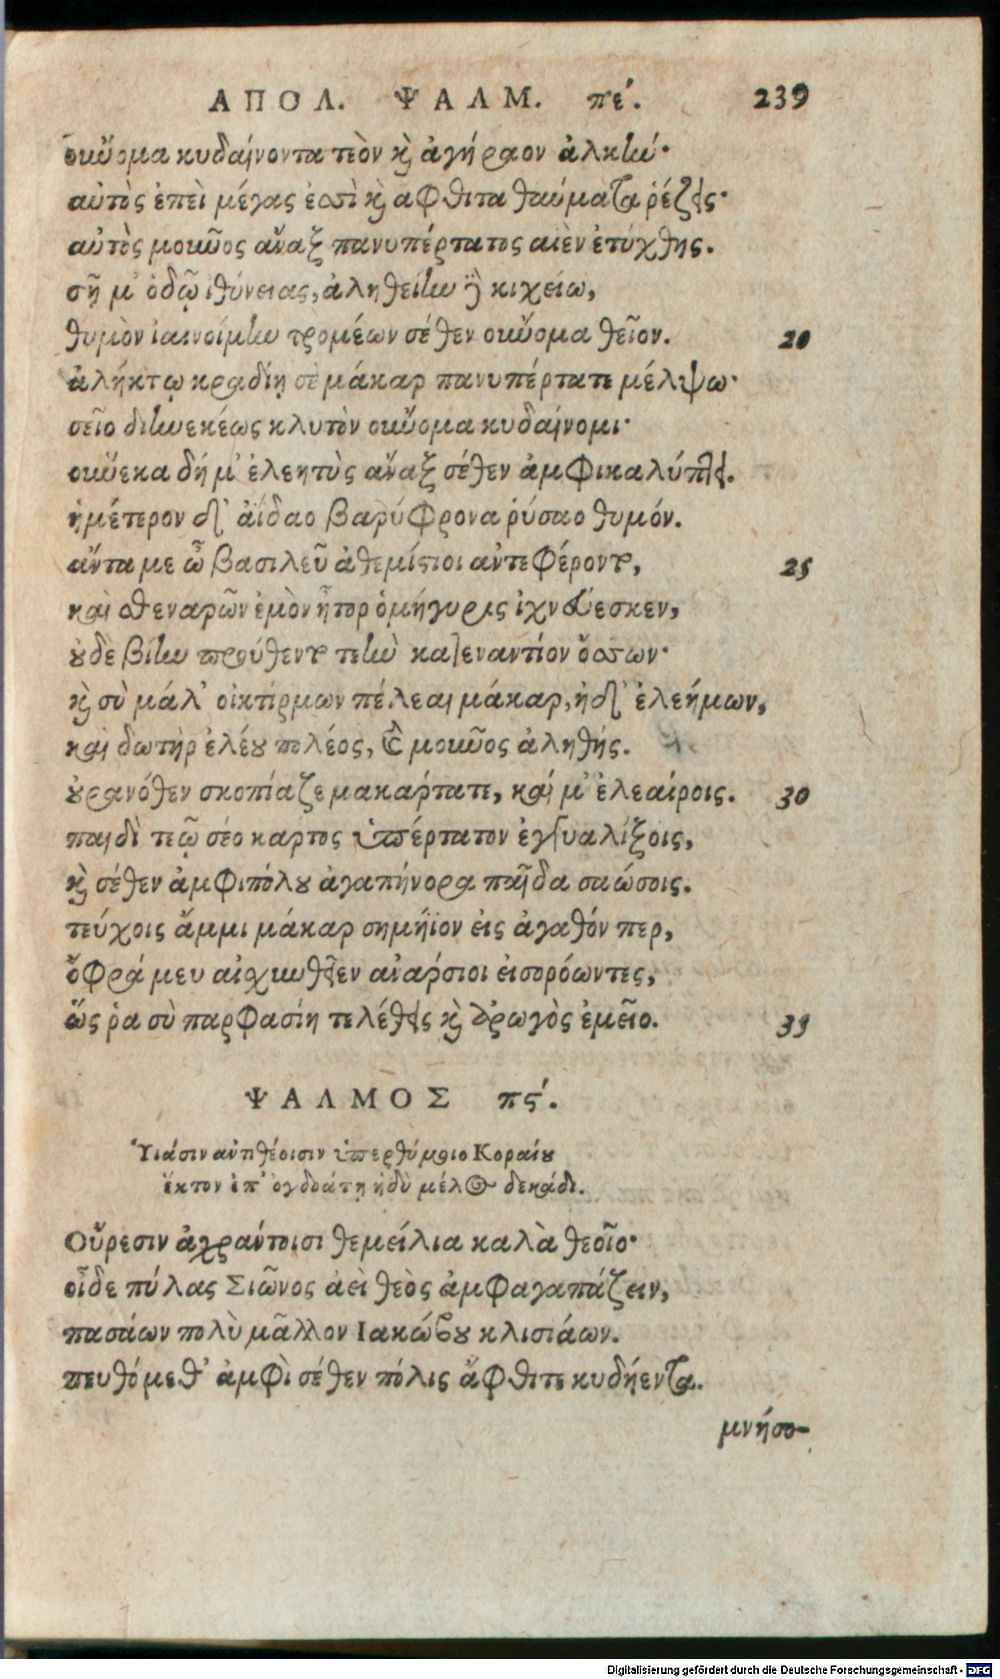 ΑΠΟΛ. ΨΑΛΜ. πέ. 239
οὔνομα κυδαίνοντα τεὸν καὶ ἀγήραον ἀλκήν·
αὐτὸς ἐπεὶ μέγας ἐσσὶ καὶ ἄφθιτα θαύματα ῥέζεις·
αὐτὸς μοῦνος ἄναξ πανυπέρτατος αἰὲν ἐτύχθης.
σῇ μ' ὁδῷ ἰθύνειας, ἀληθείην δὲ κιχείω,
θυμὸν ἰαινοίμην τρομέων σέθεν οὔνομα θεῖον. 20
ἀλήκτῳ κραδίῃ σὲ μάκαρ πανυπέρτατε μέλψω·
σεῖο διηνεκέως κλυτὸν οὔνομα κυδαίνοιμι·
οὕνεκα δή μ' ἐλεητὺς ἄναξ σέθεν ἀμφικαλύπτει.
ἡμέτερον δ' ἀΐδαο βαρύφρονα ῥύσαο θυμόν.
ἄντα με ὦ βασιλεῦ ἀθεμίστιοι ἀντεφέροντο, 25
καὶ σθεναρῶν ἐμὸν ἦτορ ὁμήγυρις ἰχνεύεσκεν,
οὐδὲ βίην προύθεντο τεὴν κατεναντίον ὄσσων·
καὶ σὺ μάλ' οἰκτίρμων πέλεαι μάκαρ, ἠδ' ἐλεήμων,
καὶ δωτὴρ ἐλέου πολέος, καὶ μοῦνος ἀληθής.
οὐρανόθεν σκοπίαζε μακάρτατε, καί μ' ἐλεαίροις. 30
παιδὶ τεῷ σέο κάρτος ὑπέρτατον ἐγγυαλίξοις,
καὶ σέθεν ἀμφιπόλου ἀγαπήνορα παῖδα σαώσοις.
τεύχοις ἄμμι μάκαρ σημήϊον εἰς ἀγαθόν περ,
ὄφρά μευ αἰσχυνθεῖεν ἀνάρσιοι εἰσορόωντες,
ὥς ῥα σὺ παρφασίη τελέθεις καὶ ἀρωγὸς ἐμεῖο. 35
ΨΑΛΜΟΣ πϛ́.
Υἱάσιν ἀντιθέοισιν ὑπερθύμοιο Κοραίου
ἕκτον ἐπ' ὀγδοάτῃ ἡδὺ μέλος δεκάδι.
Οὔρεσιν ἀχράντοισι θεμείλια καλὰ θεοῖο·
οἶδε πύλας Σιῶνος ἀεὶ θεὸς ἀμφαγαπάζειν,
πασάων πολὺ μᾶλλον Ιακώβου κλισιάων.
πευθόμεθ' ἀμφὶ σέθεν πόλις ἄφθιτε κυδήεντα.
μνήσο-
Digitalisierung gefördert durch die Deutsche Forschungsgemeinschaft - DFG